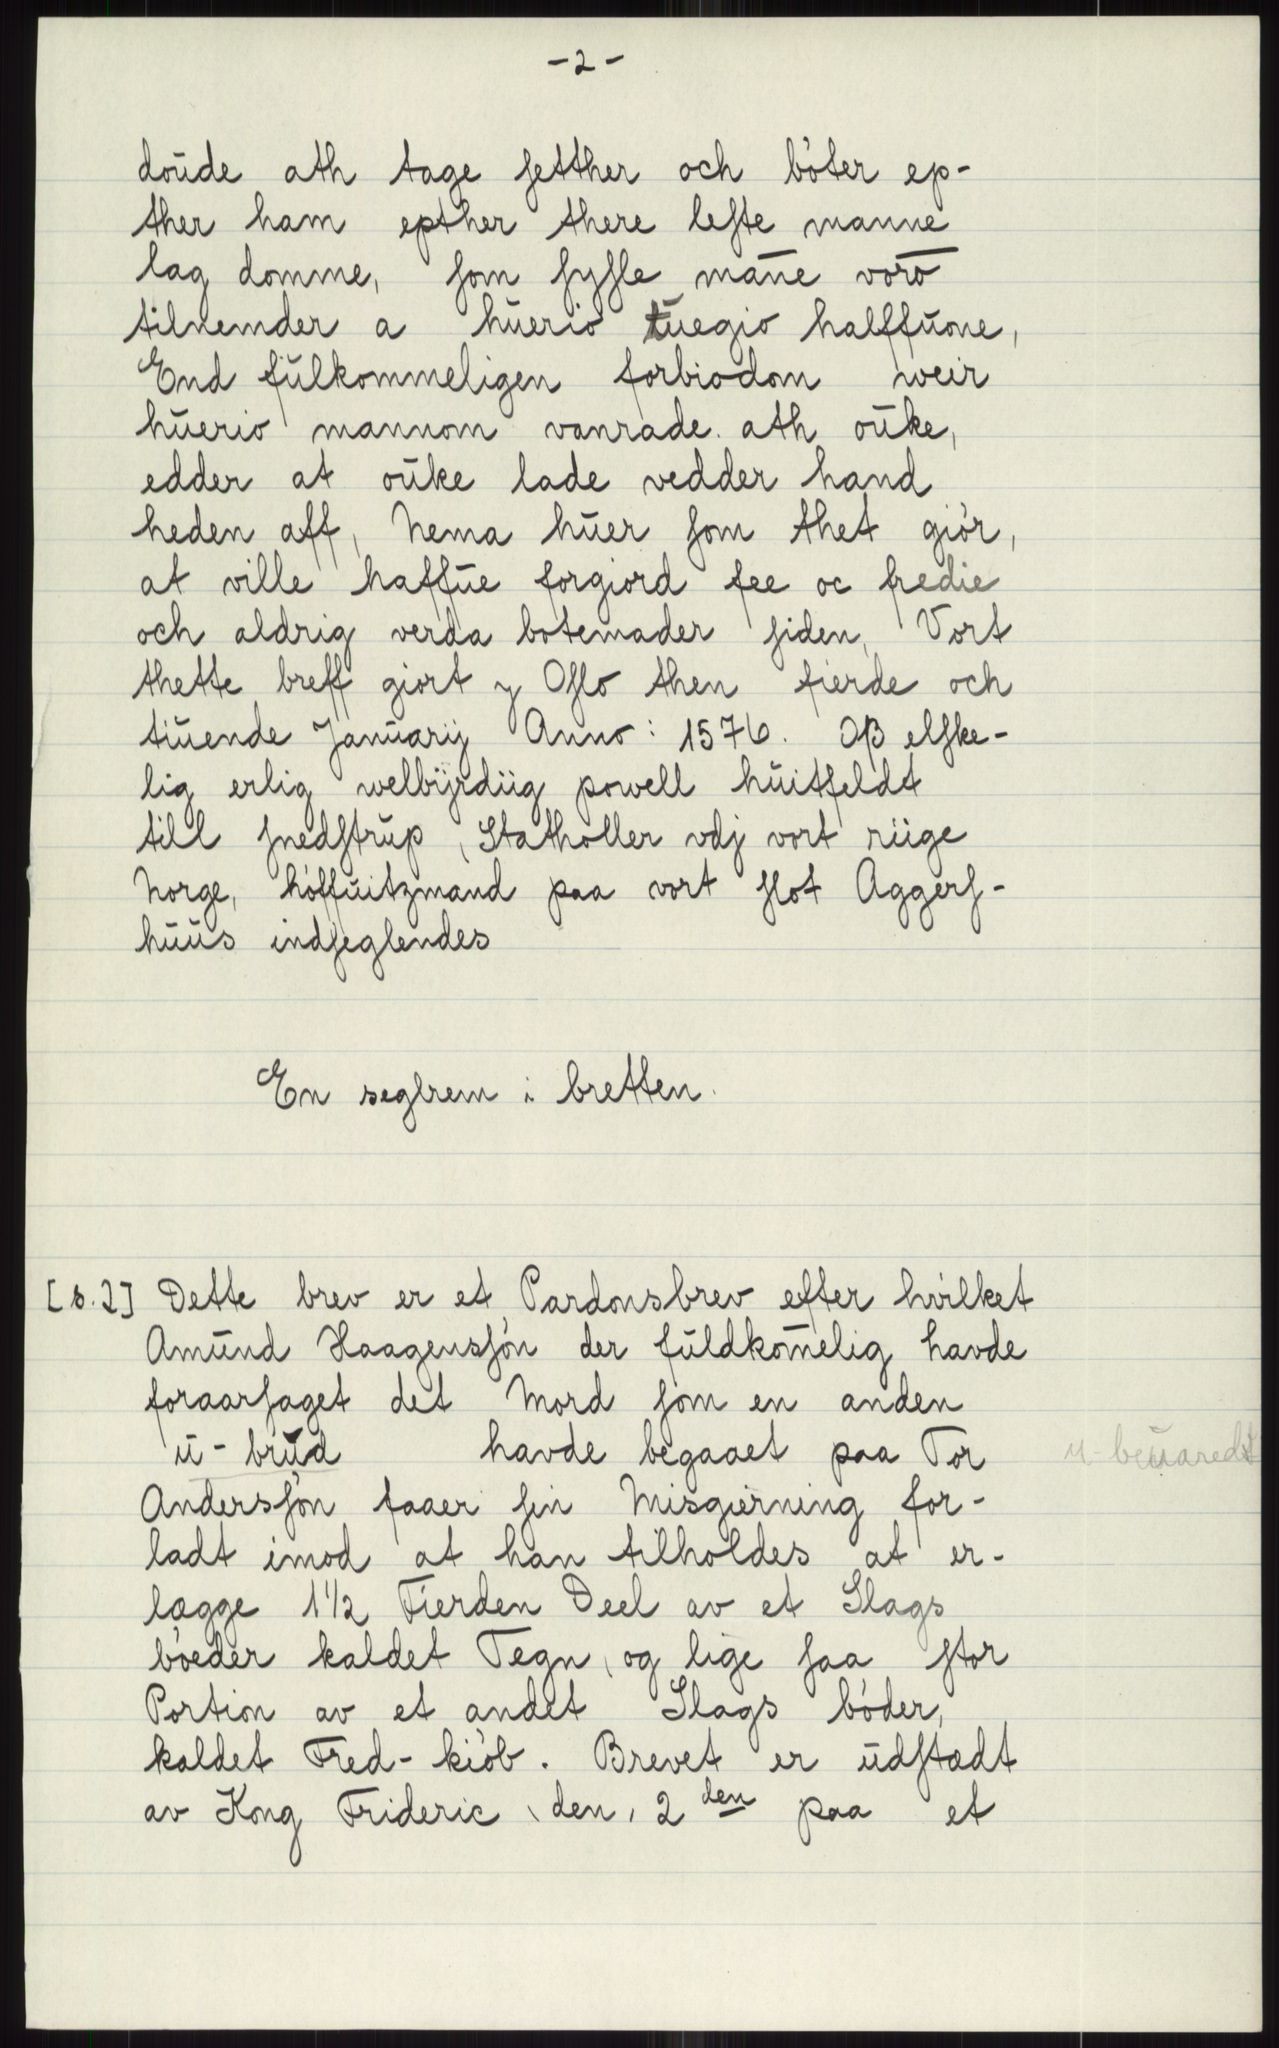 -2-
doude ath tage setther och böter ep-
ther ham epther there leste manne
lag domme, som sysle mane voro
tilnemder a huerio tuegio halffuone,
End fulkommeligen forbiodom weir
huerio mannom vanrade. ath ouke,
edder at ouke lade vedder hand
heden aff, Nema huer som thet giör,
at ville haffue forgiord fee oc fredie
och aldrig verda botemader siden, Vort
thette breff giort y Oslo then fierde och
tiuende Januarij Anno: 1576. Oß elske-
lig erlig welbijrdiig powell huitfeldt
till snedstrup, Statholler vdj vort riige
Norge, höffuitzmand paa vort slot Aggers-
huus indseglendes
En seglrem i bretten.
[s.2] Dette brev er et Pardonsbrev efter hvilket
Amund Haagenssön der fuldkom̄elig havde
foraarsaget det Mord som en anden
u-brud havde begaaet paa Tor
u-beuaredt
Anderssön faaer sin Misgierning for-
ladt imod at han tilholdes at er-
lægge 1 1/2 Fierden Deel av et Slags
böeder kaldet Tegn, og lige saa stor
Portion av et andet Slags böder,
kaldet Fred-kiöb. Brevet er udstædt
av Kong Frideric den, 2den paa et